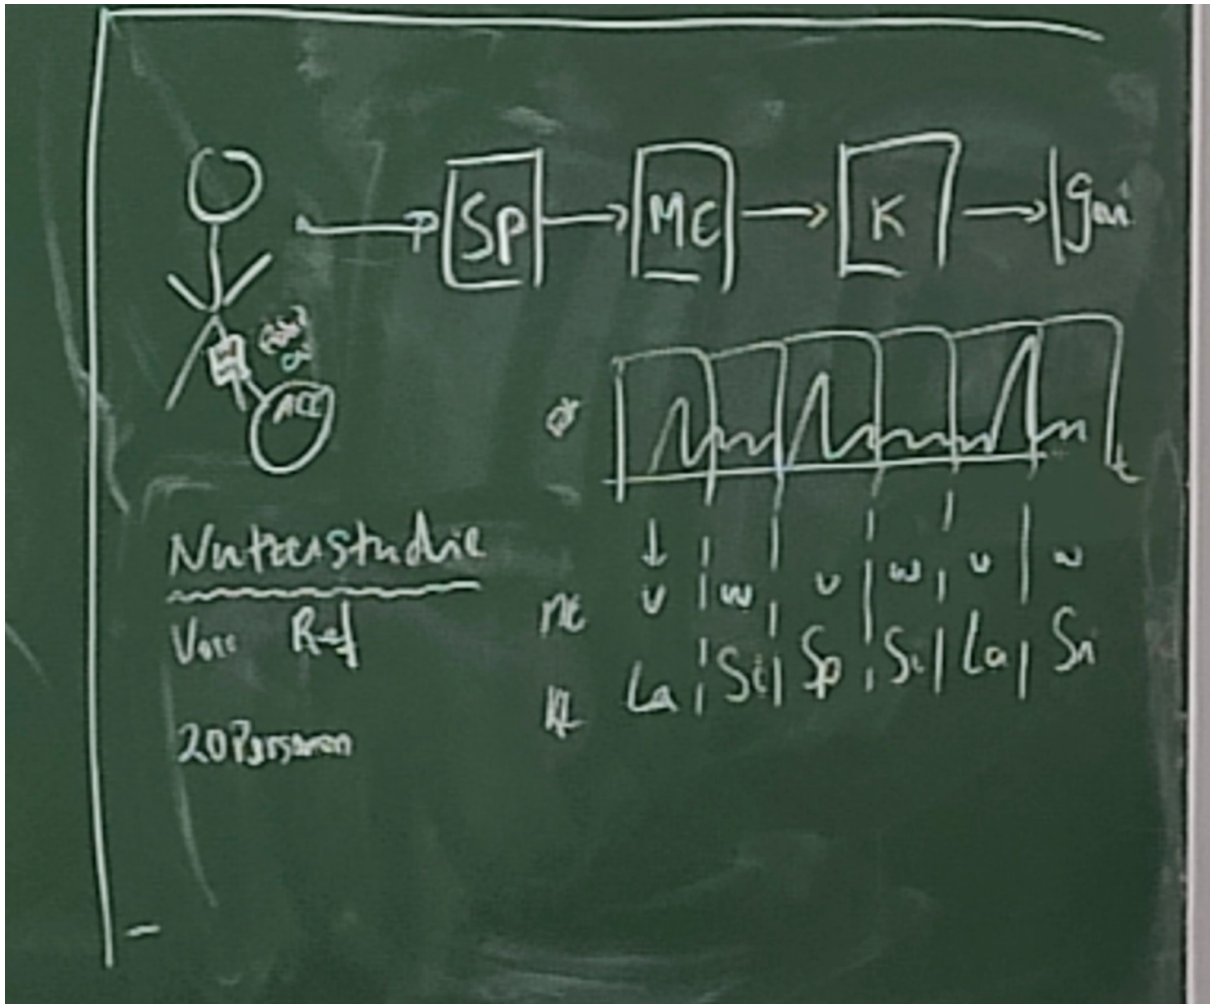 SP ME K
ACC
t
Nutzerstudie
Ref
20 Personen
ME U W U W U W
La Si Sp Si La Si